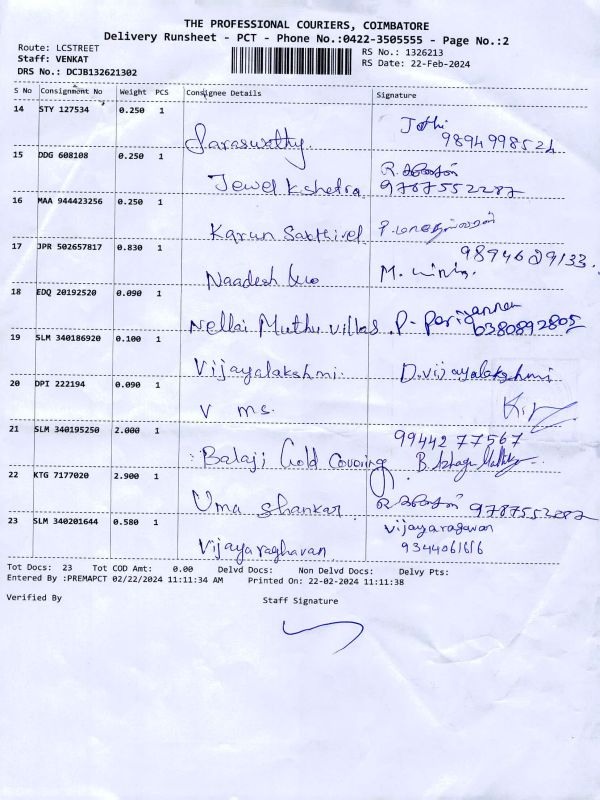 THE PROFESSIONAL COURIERS, COIMBATORE
Delivery Runsheet - PCT - Phone No.:0422-3505555 - Page No.:2
Route: LCSTREET
RS No.: 1326213
Staff: VENKAT
RS Date: 22-Feb-2024
DRS No.: DCJB132621302
S No Consignment No Weight PCS Consignee Details Signature
14 STY 127534 0.250 1 Saraswathy Jothi
9894998524
15 DDG 608108 0.250 1 Jewel Kshetra R.
9787552287
16 MAA 944423256 0.250 1 Karun Sakthivel
17 JPR 502657817 0.830 1 Naadesh M.
9894629133
18 EDQ 20192520 0.090 1 Nellai Muthu Villas P. Periyannan
6380892805
19 SLM 340186920 0.100 1 Vijayalakshmi. D.vijayalakshmi
20 DPI 222194 0.090 1 V ms.
21 SLM 340195250 2.000 1 Balaji Gold Covering 9944277567
22 KTG 7177020 2.900 1 Uma Shankar 9787552287
23 SLM 340201644 0.580 1 Vijayaraghavan Vijayaragavan
9344061616
Tot Docs: 23 Tot COD Amt: 0.00 Delvd Docs: Non Delvd Docs: Delvy Pts:
Entered By :PREMAPCT 02/22/2024 11:11:34 AM Printed On: 22-02-2024 11:11:38
Verified By Staff Signature